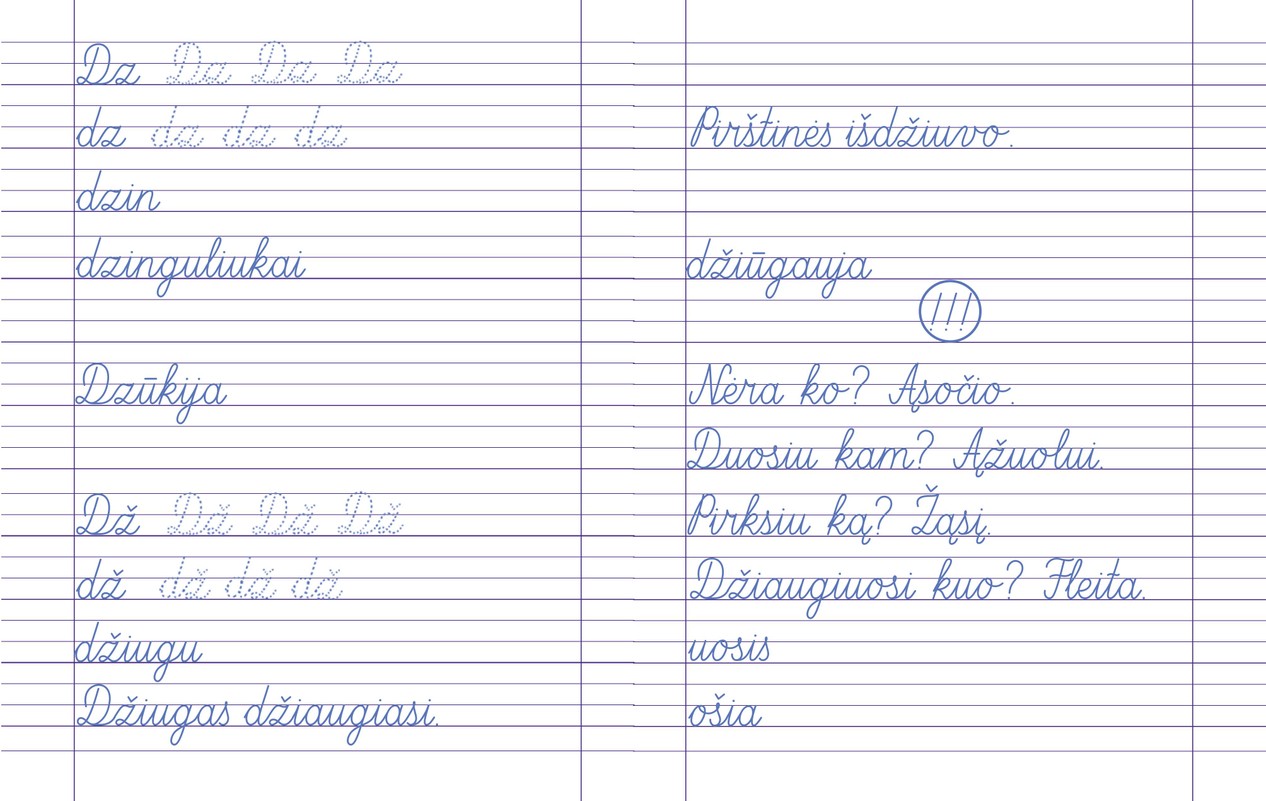 Dz Dz Dz Dz
dz dz dz dz
dzin
dzinguliukai
Dzūkija
Dž Dž Dž Dž
dž dž dž dž
džiugu
Džiugas džiaugiasi.
Pirštinės išdžiuvo.
džiūgauja
!!!
Nėra ko? Ąsočio.
Duosiu kam? Ąžuolui.
Pirksiu ką? Žąsį.
Džiaugiuosi kuo? Fleita.
uosis
ošia